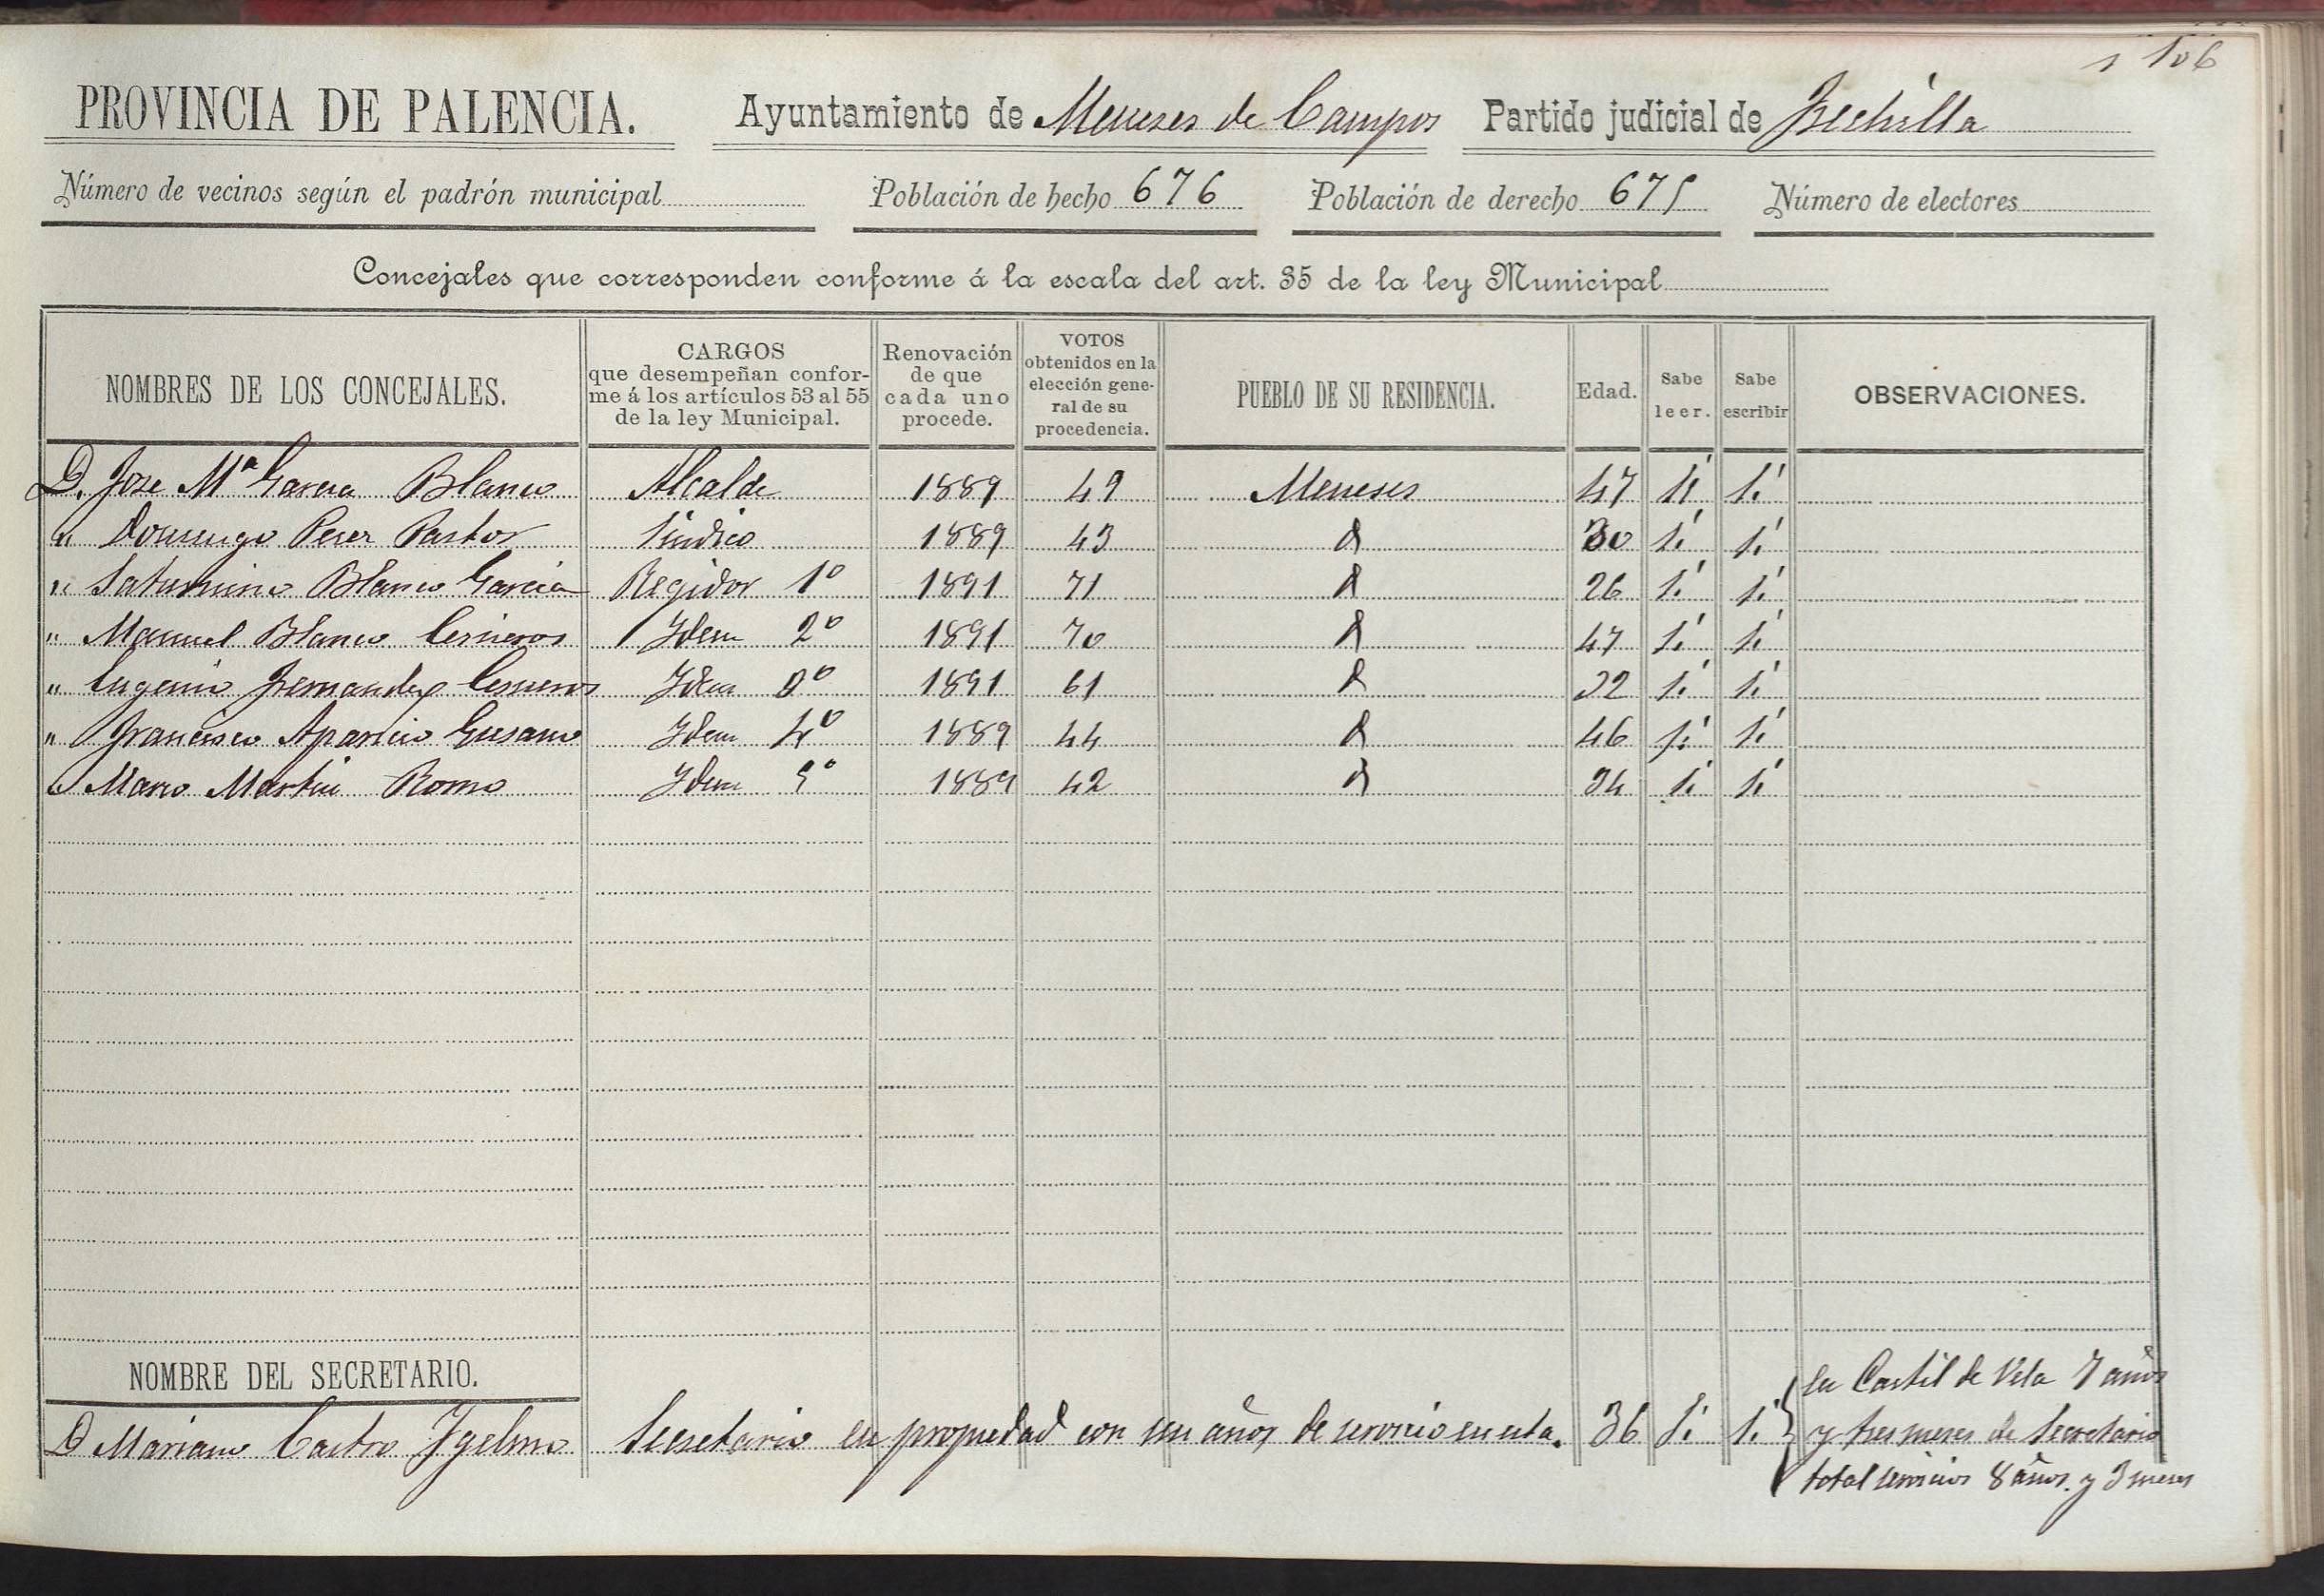 106
PROVINCIA DE PALENCIA. Ayuntamiento de Meneses de Campos Partido judicial de Frechilla
Número de vecinos según el padrón municipal Población de hecho 676 Población de derecho 675 Número de electores
Concejales que corresponden conforme á la escala del art. 35 de la ley Municipal
NOMBRES DE LOS CONCEJALES. CARGOS que desempeñan confor-me á los artículos 53 al 55 de la ley Municipal. Renovación de que cada uno procede. VOTOS obtenidos en la elección gene-ral de su procedencia. PUEBLO DE SU RESIDENCIA. Edad. Sabe leer. Sabe escribir OBSERVACIONES.
D. Jose Mª Garcia Blanco Alcalde 1889 49 Meneses 47 Si Si
" Domingo Perez Pastor Sindico 1889 43 id 30 Si Si
" Saturnino Blanco Garcia Regidor 1º 1891 71 id 26 Si Si
" Manuel Blanco Cisneros Idem 2º 1891 70 id 47 Si Si
" Eugenio Fernandez Cisneros Idem 3º 1891 61 id 32 Si Si
" Francisco Aparicio Gusano Idem 4º 1889 44 id 46 Si Si
" Mario Martin Romo Idem 5º 1889 42 id 34 Si Si
NOMBRE DEL SECRETARIO.
D Mariano Castro Ygelmo Secretario en propiedad con un años de servicio en esta. 36 Si Si
En Castil de Vela 7 años
y tres meses de Secretario
total servicios 8 años y 3 meses